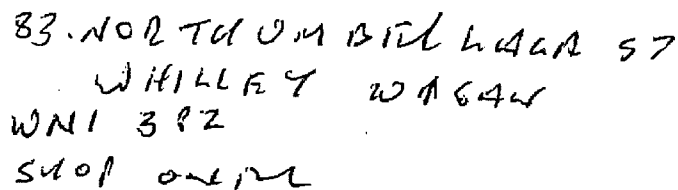 83. NORTHUMBERLAND ST
WHILLEY WIGAN
WN1 3PZ
SHOP OWNER